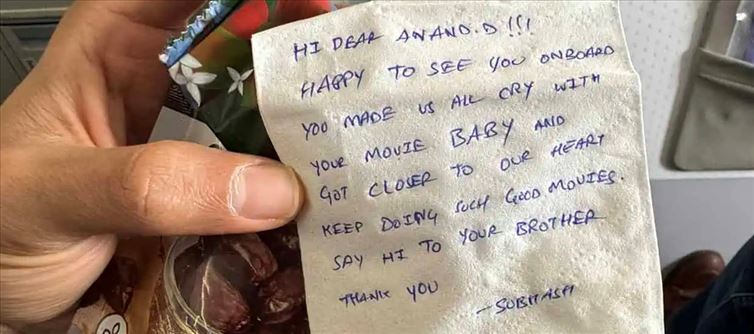 HI DEAR ANAND.D !!!
HAPPY TO SEE YOU ONBOARD
YOU MADE US ALL CRY WITH
YOUR MOVIE BABY AND
GOT CLOSER TO OUR HEART
KEEP DOING SUCH GOOD MOVIES.
SAY HI TO YOUR BROTHER
THANK YOU
- SUBHASH